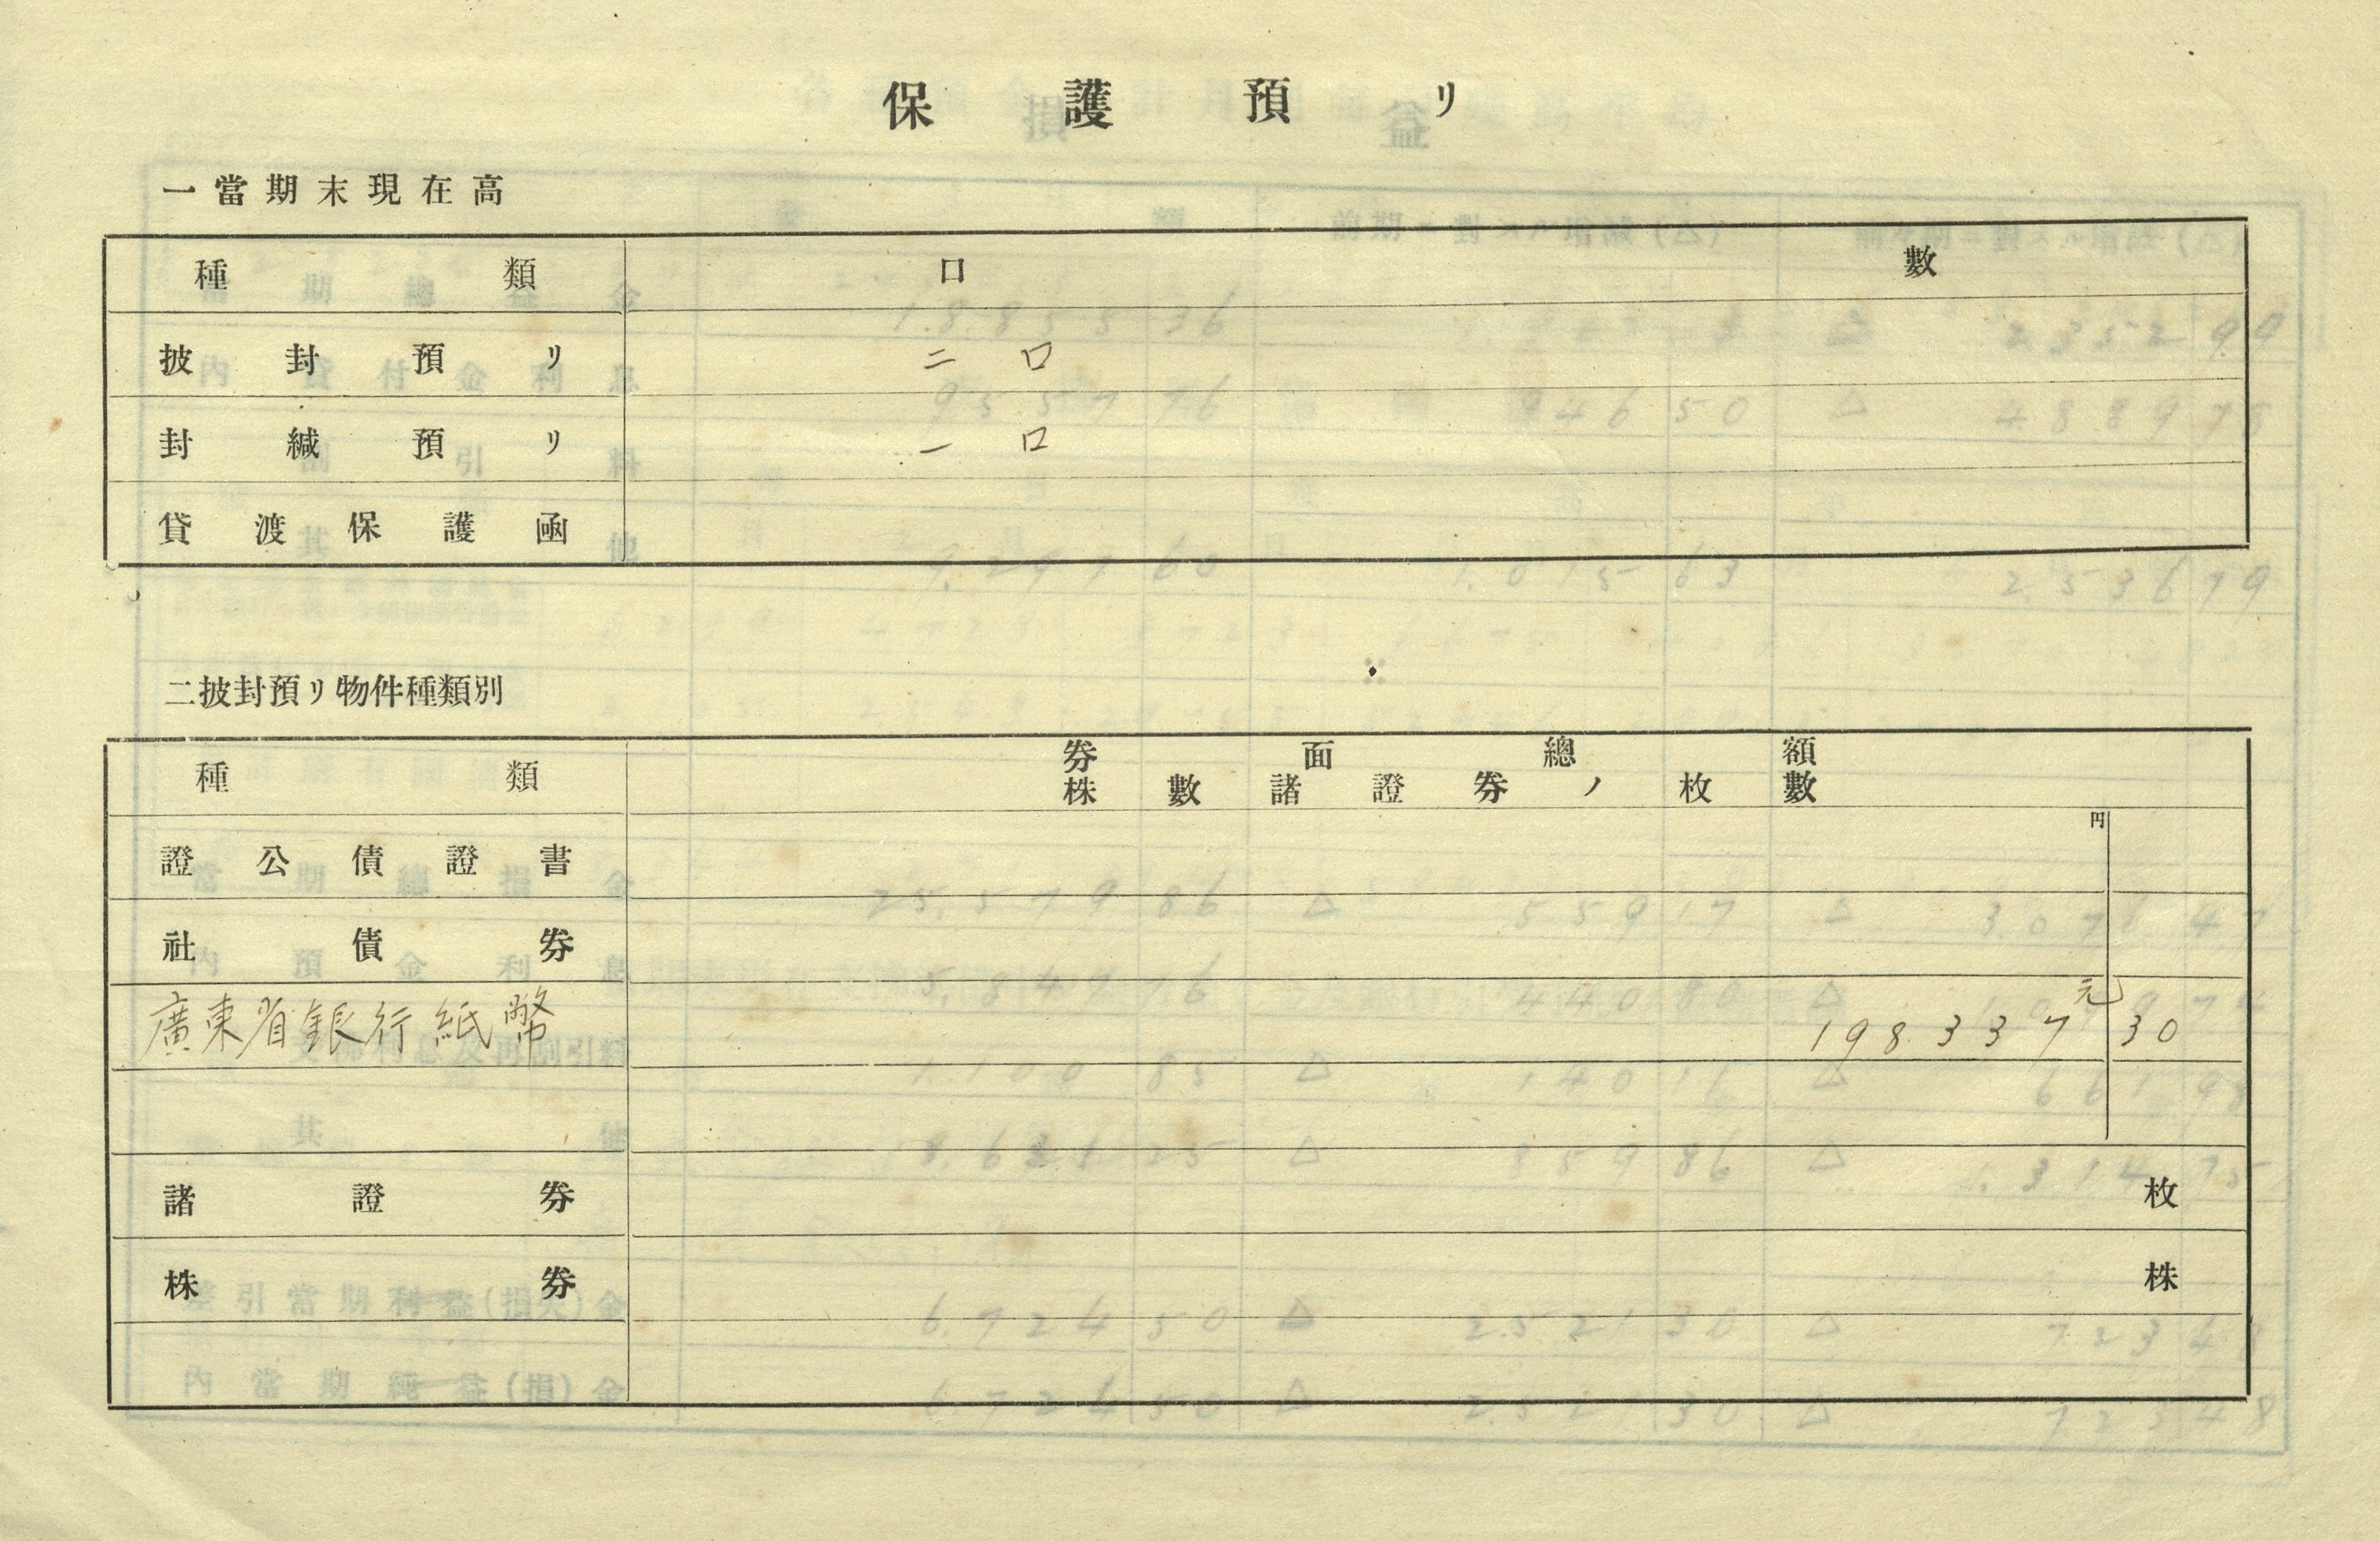 保護預リ
一當期末現在高
種類 口數
披封預リ 二口
封緘預リ 一口
貸渡保護函
二披封預リ物件種類別
種類 券面總額
株數諸證券ノ枚數
円
證公債證書
社債券
元
廣東省銀行紙幣 198.337 30
諸證券 枚
株券 株